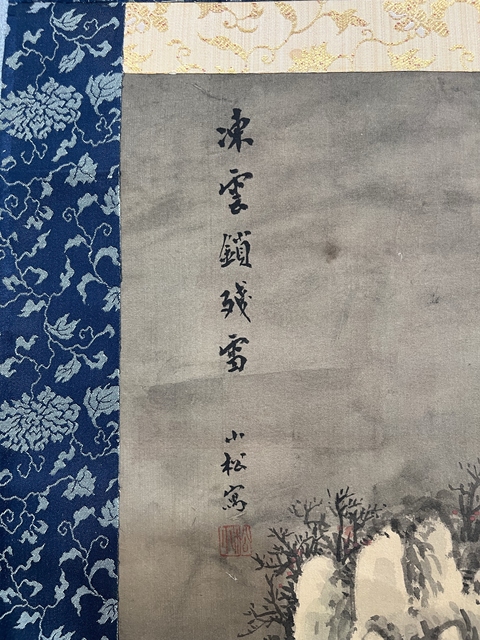 凍雲鎖残雪
小松寫